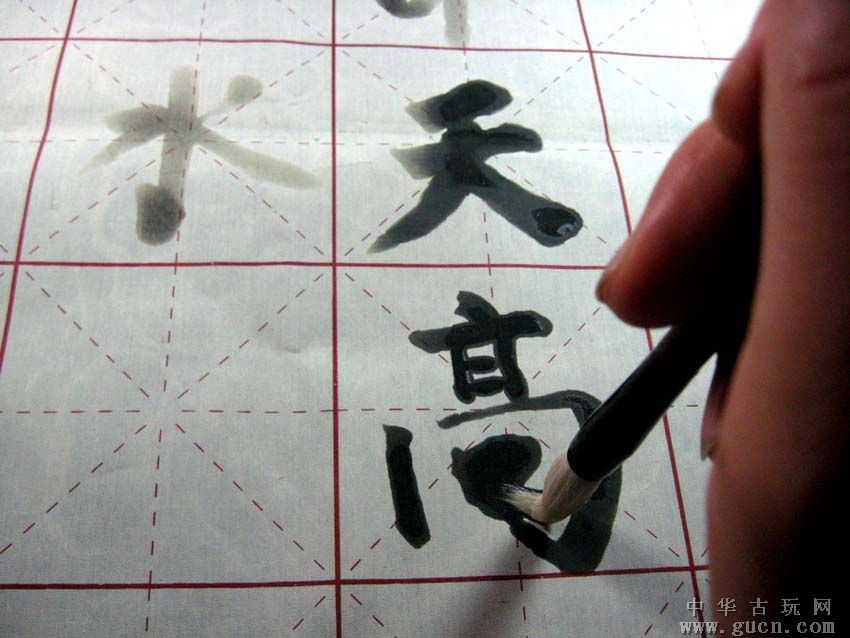 天
高
水
中华古玩网
www.gucn.com